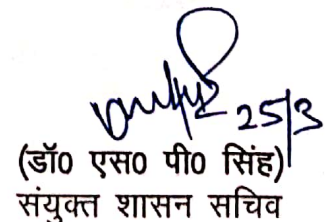 25/3
(डॉ0 एस0 पी0 सिंह)
संयुक्त शासन सचिव